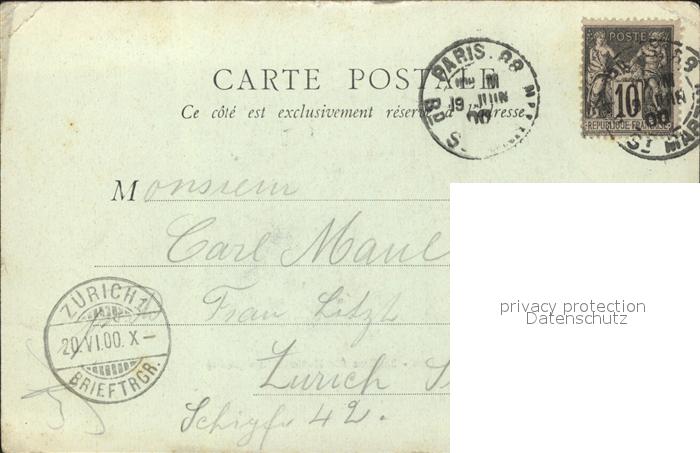 CARTE POSTALE
Ce côté est exclusivement réservé à l'adresse
PARIS. 88
19 JUIN
00
Bd St
POSTE
10
REPUBLIQUE FRANÇAISE
Monsieur
Carl Maul
Frau Litzt
Zurich
Schipfe 42.
ZÜRICH 1
20.VI.00. X–
BRIEFTRGR.
privacy protection
Datenschutz